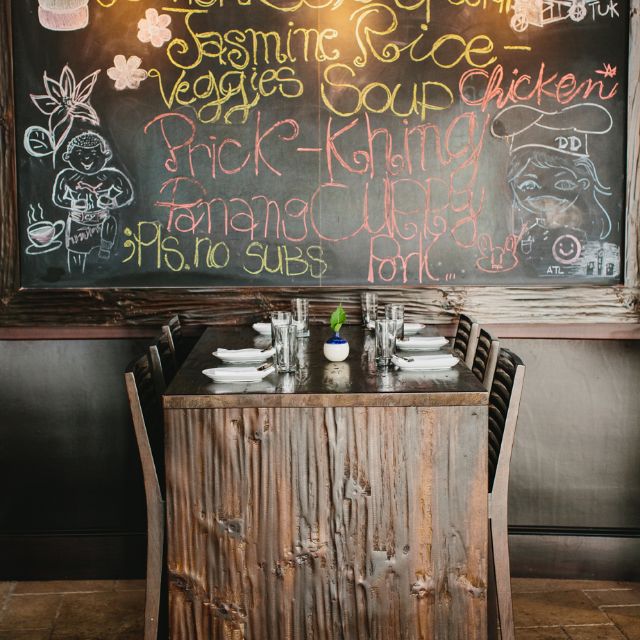 TUK
Jasmine Rice -
Veggies Soup Chicken
Prick-Khing
Panang Curry
;Pls. no SUBS Pork...
DD
ATL